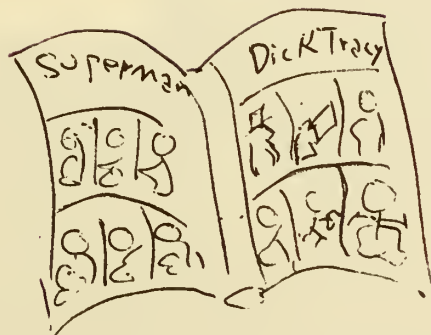 Superman
Dick Tracy